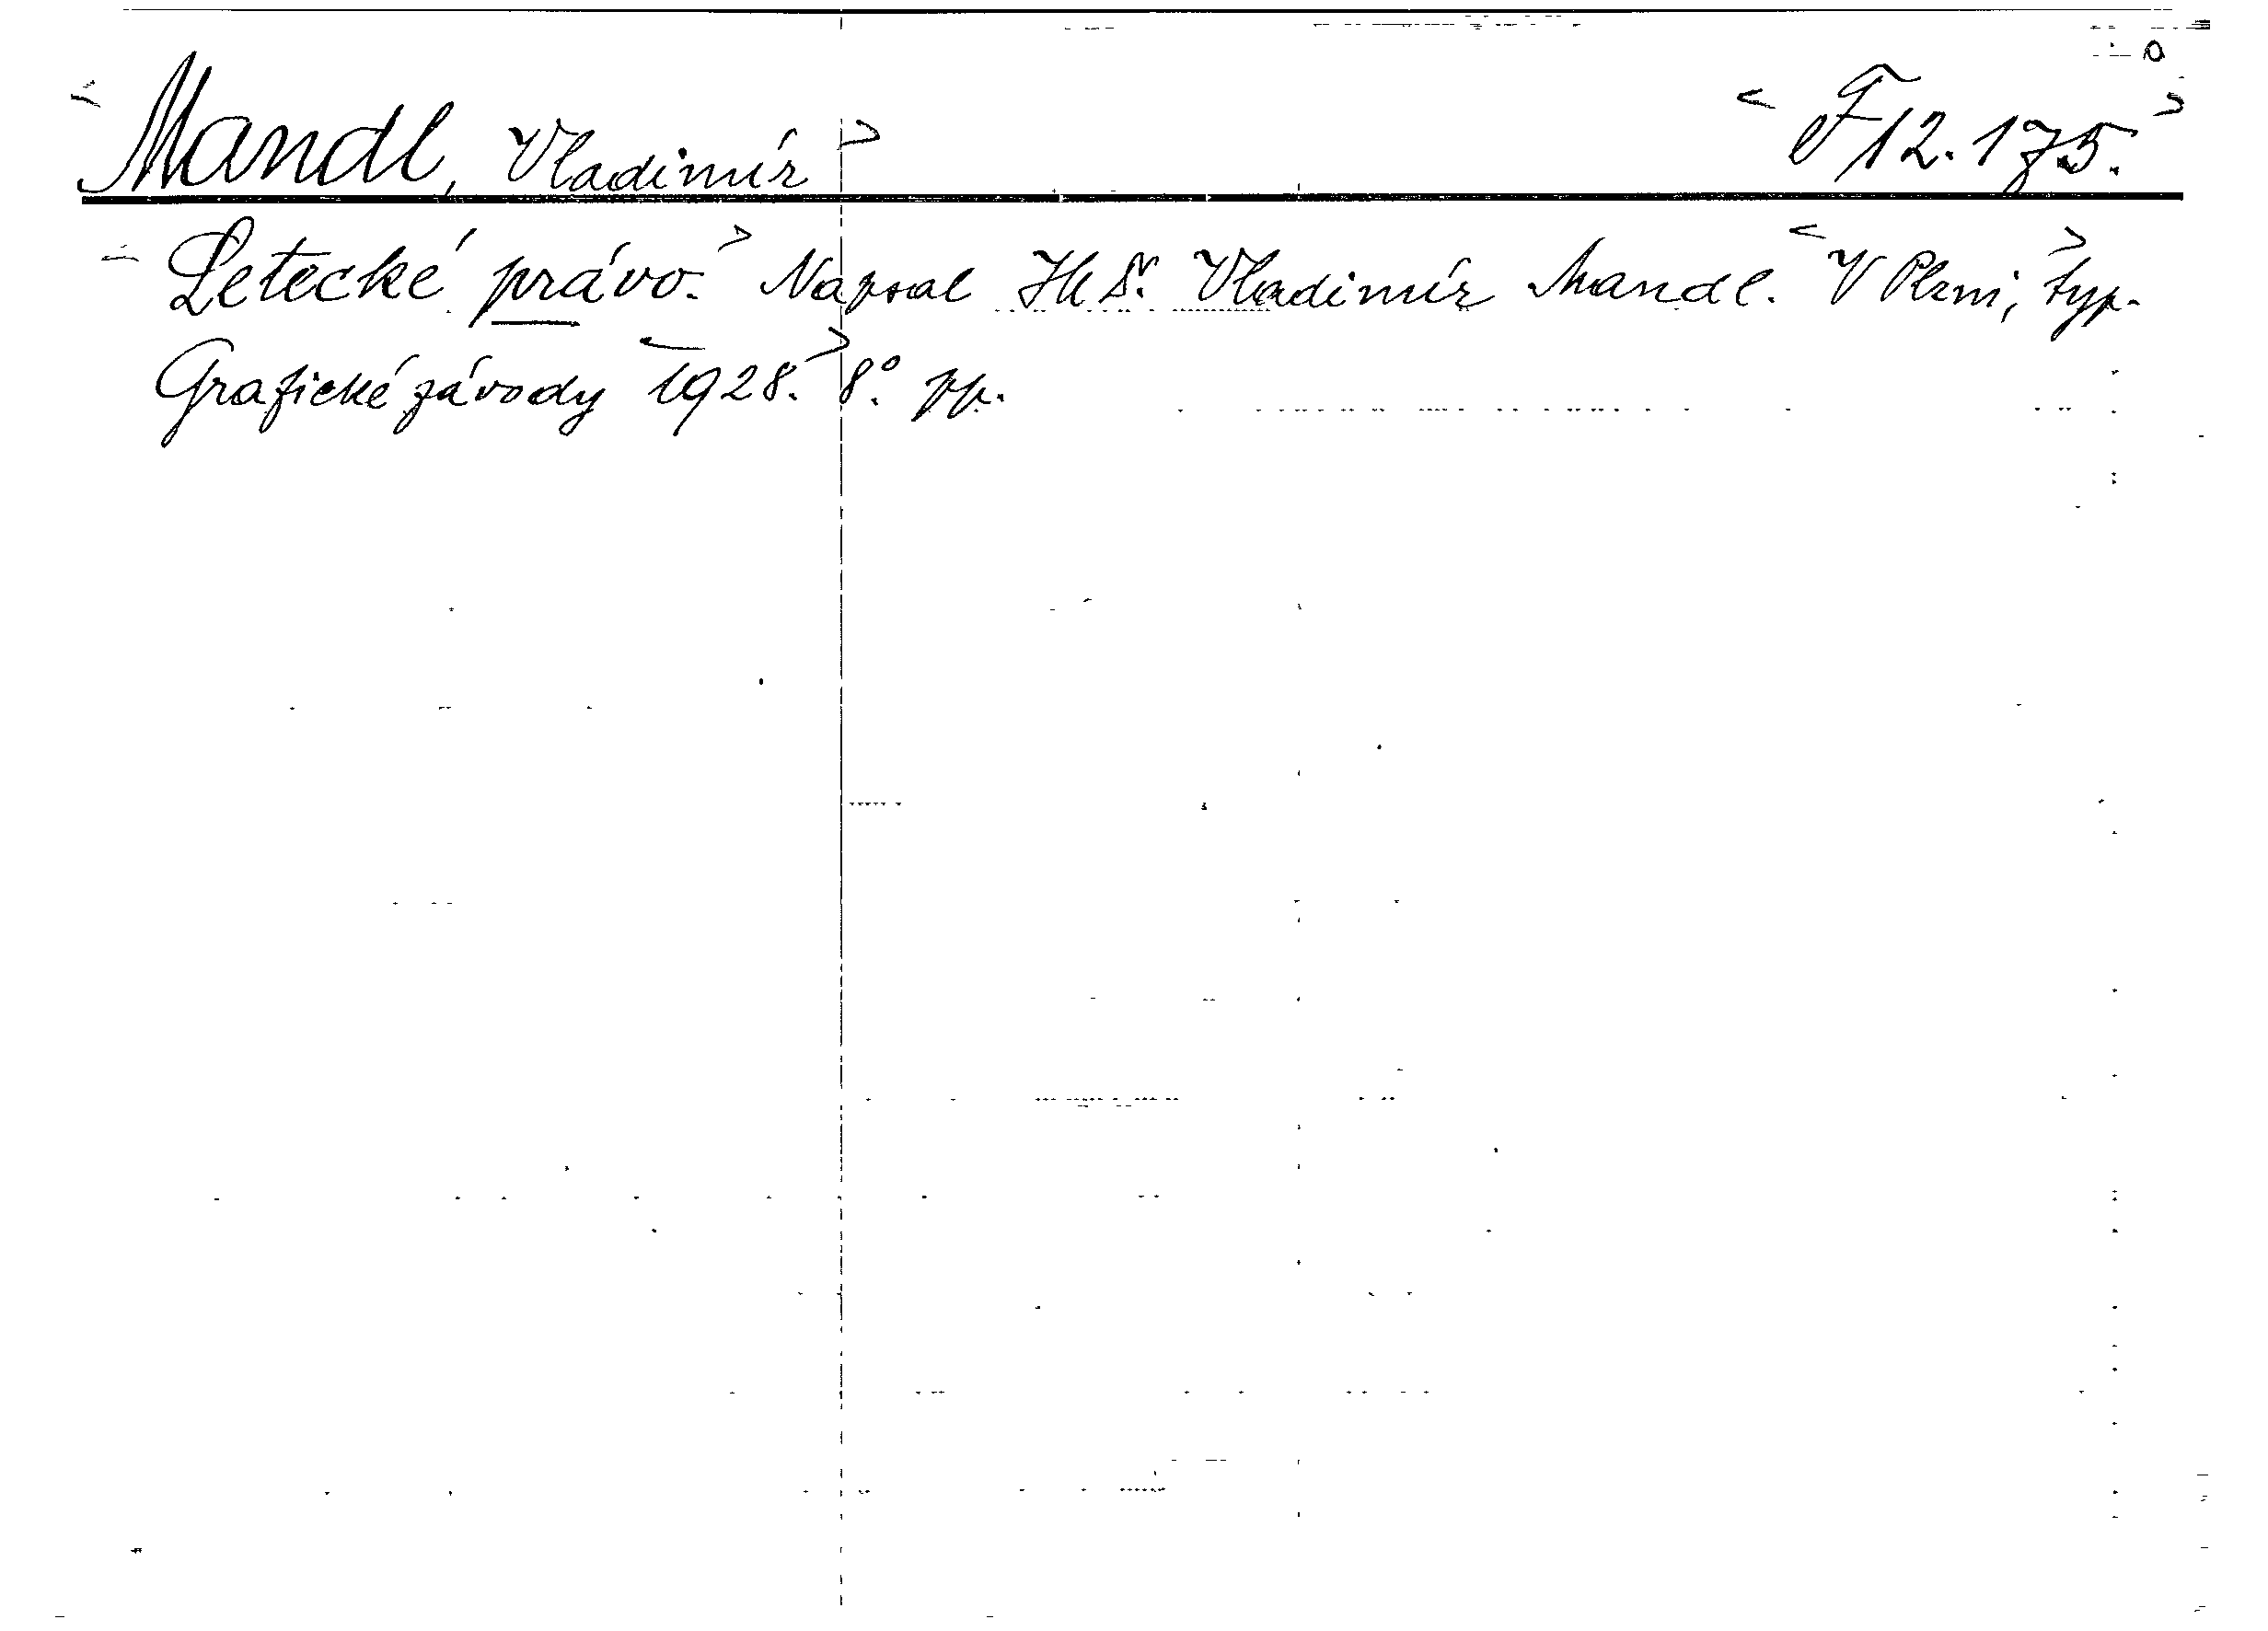 Mandl, Vladimír F 12.175.
Letecké právo. Napsal JUDr. Vladimír Mandl. V Plzni, typ.
Grafické závody 1928. 8°. pp.